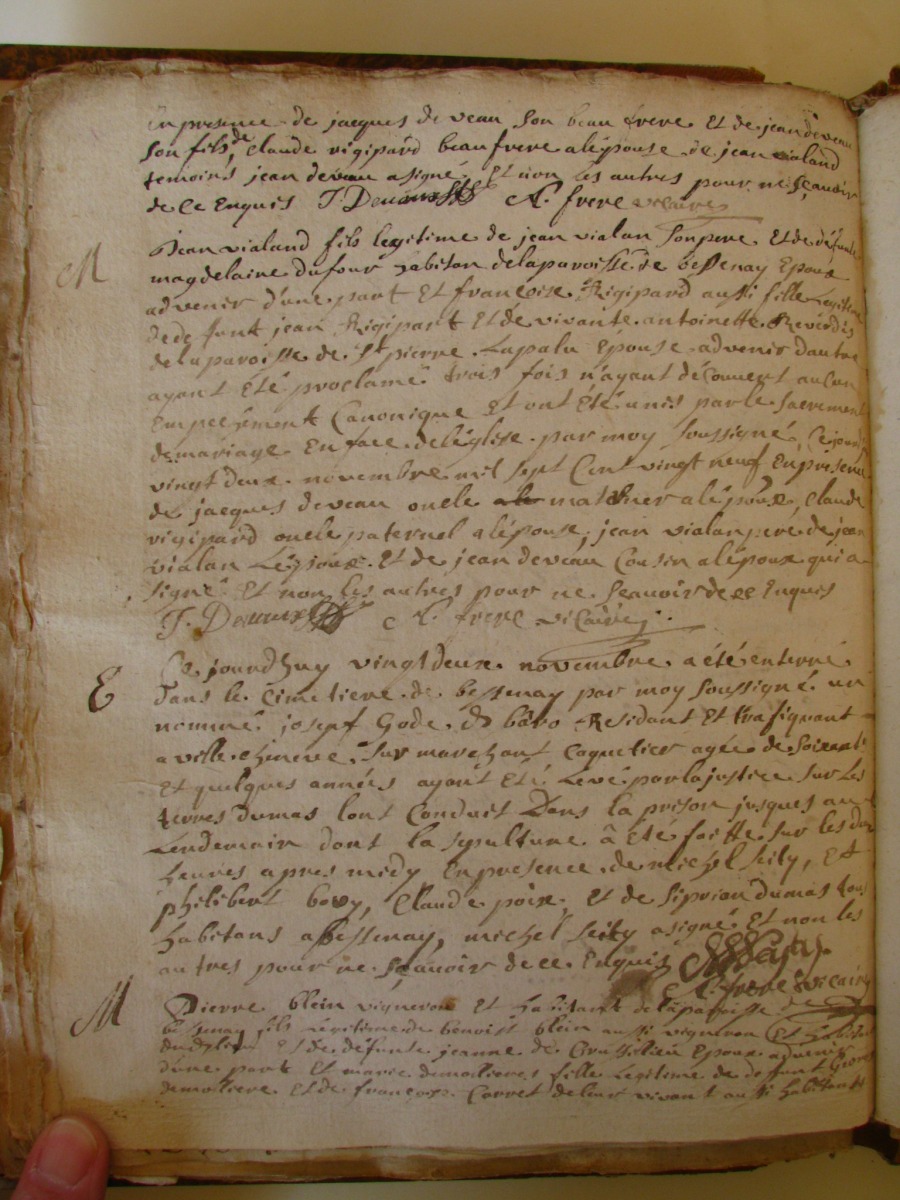 en presence de jacques deveau son beau frere Et de jean deveau
son fils, de Claude rigipard beaufrere alépouse de jean vialand
temoins jean deveau asigné Et non les autres pour ne sçauoir
de ce Enquis J. Deueaux C. frere vicaire
M
Jean vialand fils legitime de jean vialan son pere Et de défunte
magdelaine dufour habitan delaparoisse de bessenay Epoux
advenir d'une part Et francoise Rigipard aussi fille legitime
de defunt jean Rigipart Et de vivante antoinette Reverdis
delaparoisse de St pierre Lapalu Epouse advenir dautre
ayant Eté proclamé trois fois n'ayant découvert aucun
Empeschement Canonique Et ont été unis parle sacrement
demariage En face deléglise par moy soussigné, Cejourdhuy
vingt deux novembre mil sept Cent vingt neuf Enpresence
de jacques deveau oncle maternel alépoux, Claude
rigipard oncle paternel alépouse, jean vialan pere de jean
vialan Lépoux Et de jean deveau Cousin alépoux qui a
signé Et non les autres pour ne sçauoir de ce Enquis
J. Deueaux C. frere vicaire
E
Ce jourdhuy vingt deux novembre a été enterré
Dans le Cimetiere de bessenay par moy soussigné un
nommé josepf Gode Residant Et trafiquant
a ville chineve sur marchant Coquetier agée de soixante
Et quelques annéis ayant Eté Levé parlajustice sur Les
terres dumas lont Conduit Dans la prison jusques au
Lendemain dont la sepulture à Eté faitte sur les deux
heures apres midy Enpresence de michel seity, Et
philibert bovy, Claude poix, Et de siprien dumas tous
habitans abessenay, michel seity asigné Et non les
autres pour ne sçauoir de ce Enquis
C. frere vicaire
M
Pierre blein vigneron Et habitant delaparoisse de
bessenay fils Légitime de benoist blein aussi vigneron Et habitant
dudit lieu Et de défunte jeanne de Crussilieu Epoux advenir
dune part Et marie demolieres fille Legitime de defunt
demoliere Et de françoise Carret deleur vivant aussi habittants